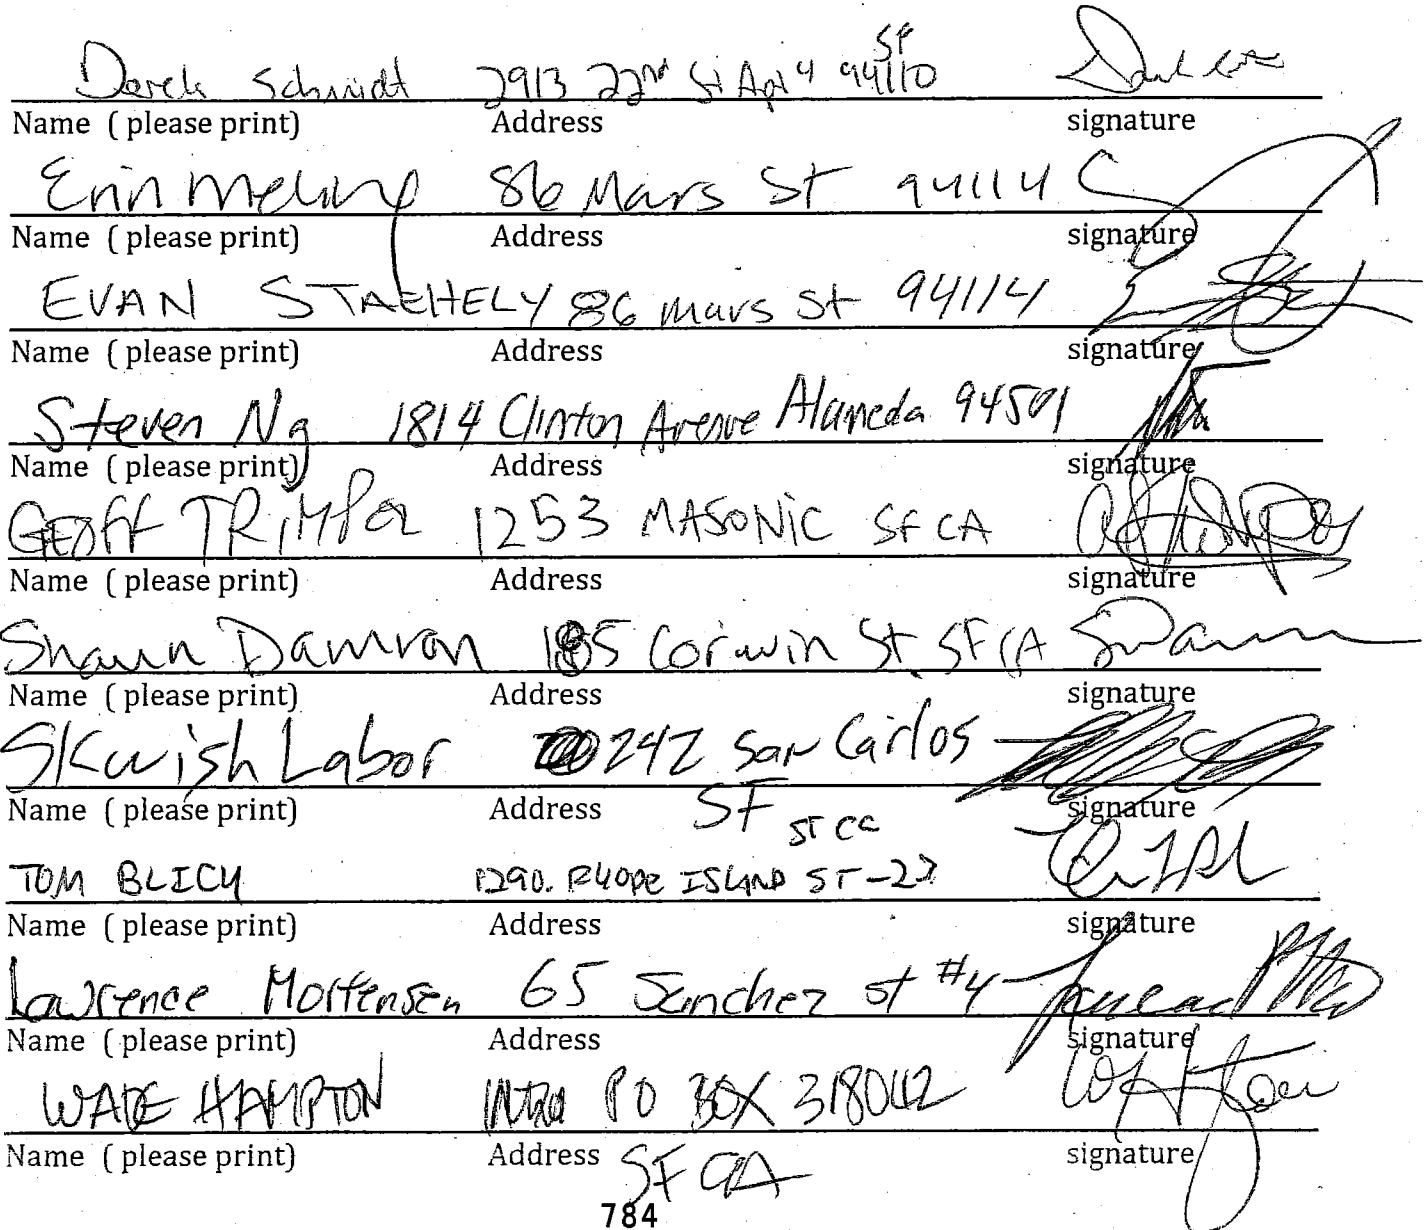 Derek Schmidt 2913 22nd St Apt 4 SF 94110
Name ( please print) Address signature
Erin 86 Mars St 94114
Name ( please print) Address signature
EVAN STAEHELY 86 mars st 94114
Name ( please print) Address signature
Steven Ng 1814 Clinton Avenue Alameda 94501
Name ( please print) Address signature
GEOFF 1253 MASONIC SF CA
Name ( please print) Address signature
Shaun Damron 185 Corwin St SF CA
Name ( please print) Address signature
Skwish Labor 242 San Carlos
Name ( please print) Address SF signature
TOM BLICY 1290. RHODE ISLAND ST
Name ( please print) Address signature
Lawrence Mortensen 65 Sanchez st #4
Name ( please print) Address signature
WADE HAMPTON PO BOX 318042
Name ( please print) Address SF CA signature
784